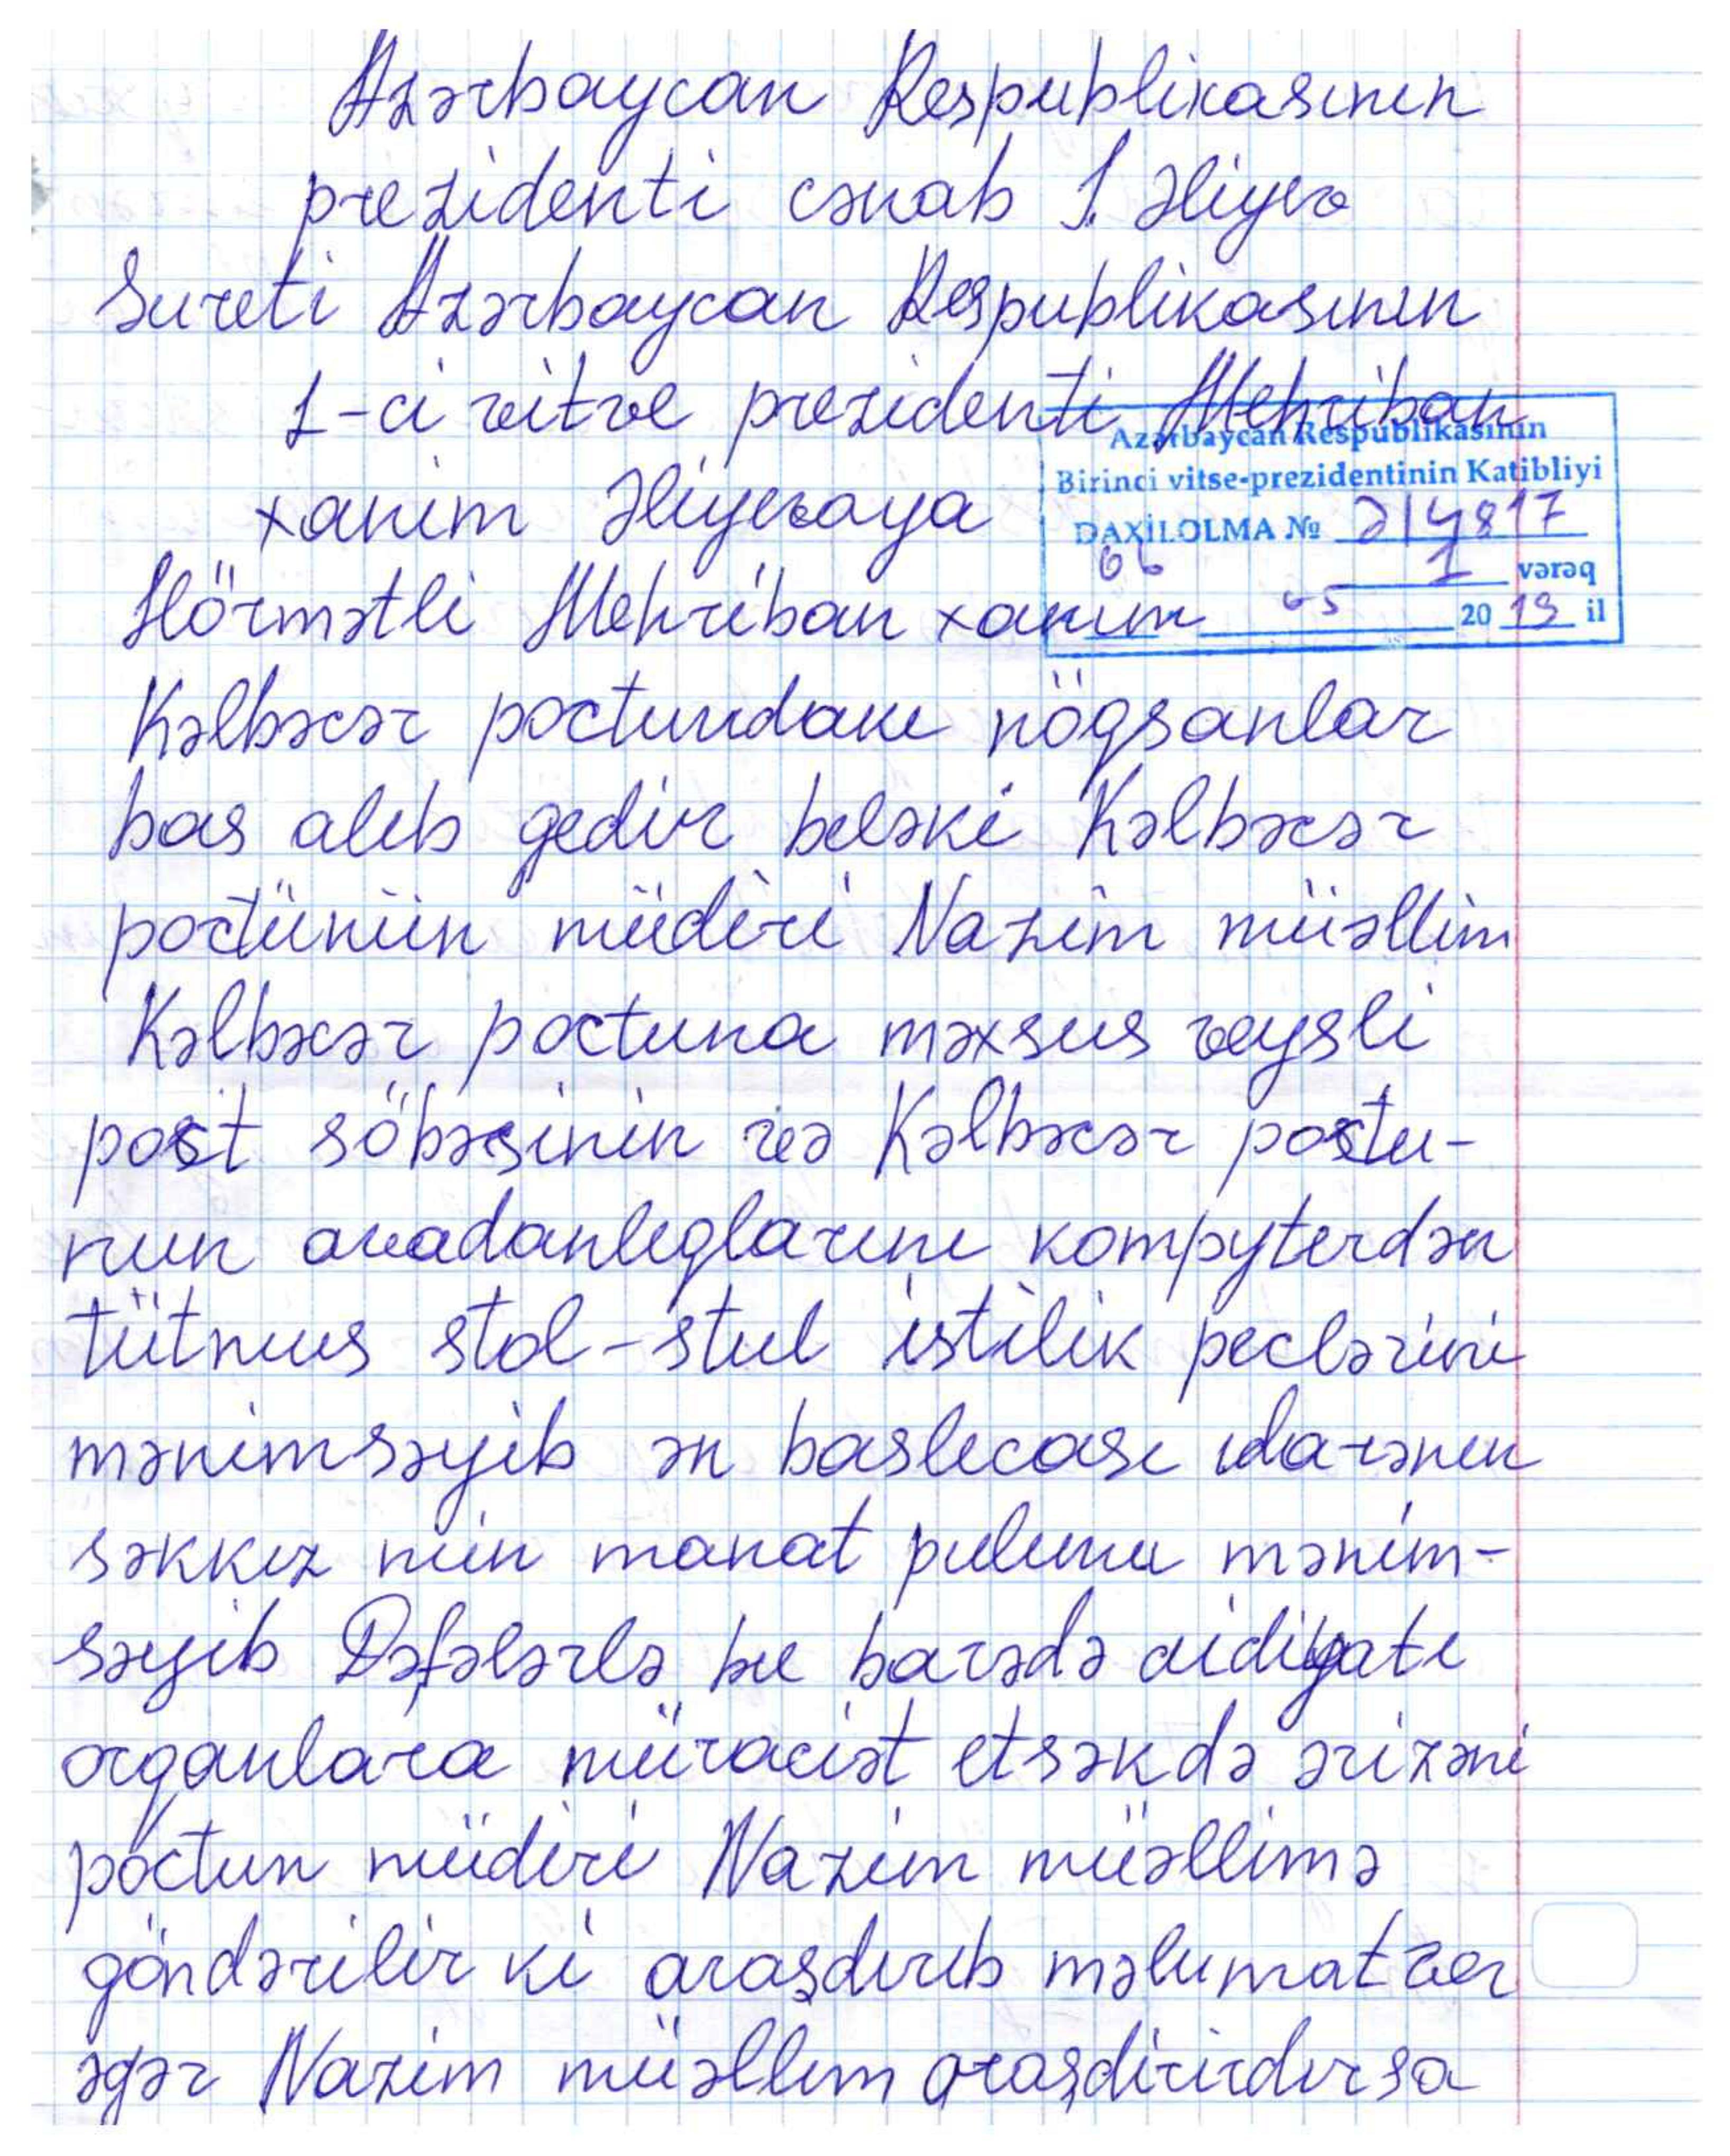 Azərbaycan Respublikasının
prezidenti cənab İ. Əliyev
Sureti Azərbaycan Respublikasının
1-ci vitve prezidenti Mehriban
xanım Əliyevaya
Azərbaycan Respublikasının
Birinci vitse-prezidentinin Katibliyi
DAXİLOLMA № Ə14817
06 1 vərəq
05 2019 il
Hörmətli Mehriban xanım
Kəlbəcər poctundakı nögsanlar
bas alıb gedir beləki Kəlbəcər
poctünün müdiri Nazim müəllim
Kəlbəcər poctuna məxsus veysli
post söbəsinin və Kəlbəcər postu-
nun avadanlıglarını kompyterdən
tütmus stol-stul istilik peclərini
mənimsəyib ən baslıcası idarənın
səkkız min manat pulunu mənim-
səyib Dəfələrlə bu barədə aidiyatı
organlara müraciət etsəkdə ərizəni
poctun müdiri Nazim müəllimə
göndərilir ki araşdırıb məlumat ver
əgər Nazim müəllim araşdirirdırsa